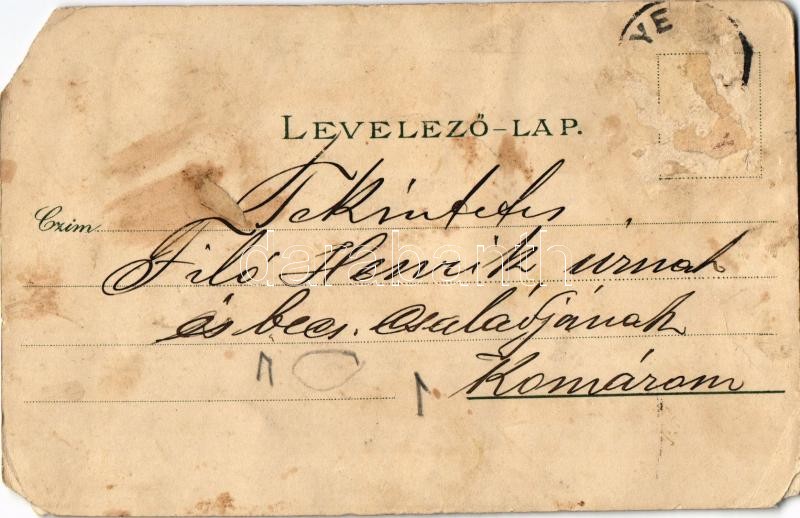 YE
LEVELEZŐ-LAP.
Czim Tekintetes
Filó Henrik úrnak
és becs. családjának
Komárom